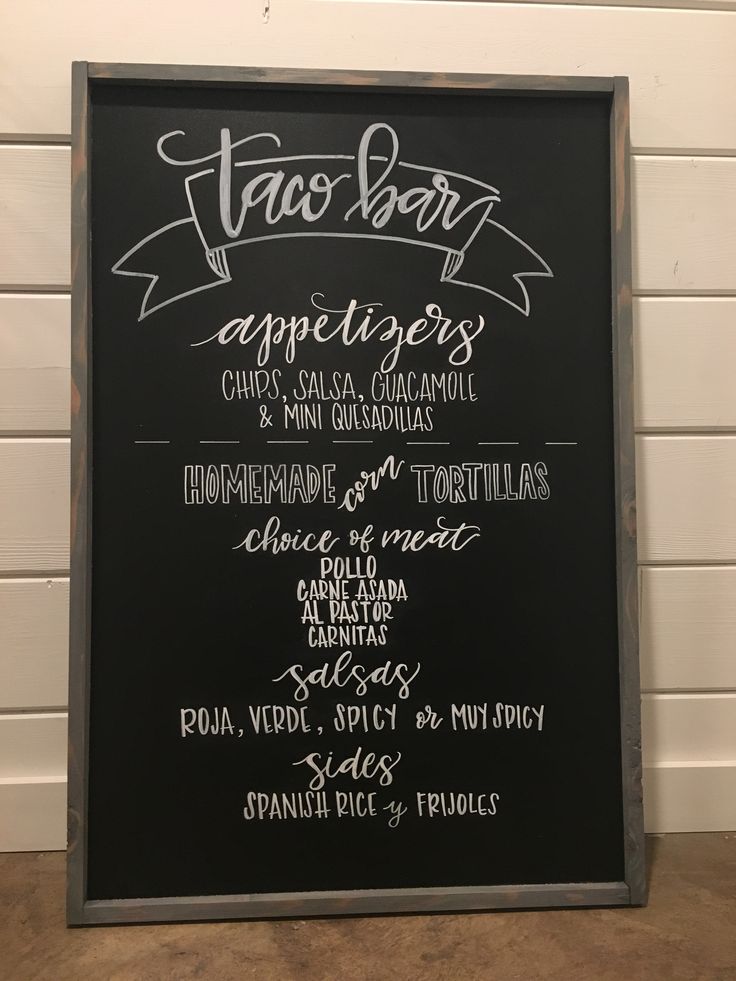 taco bar
appetizers
CHIPS, SALSA, GUACAMOLE
& MINI QUESADILLAS
HOMEMADE corn TORTILLAS
choice of meat
POLLO
CARNE ASADA
AL PASTOR
CARNITAS
salsas
ROJA, VERDE, SPICY or MUY SPICY
sides
SPANISH RICE y FRIJOLES